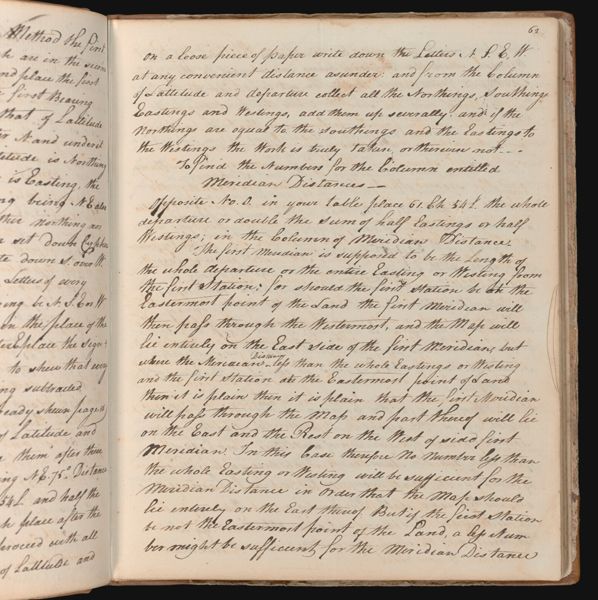 Method the first
h are in the
and place the first
e first Bearing
that of Lattitude
N and under it
Latitude is Northing
is Easting, the
ng being N E
Northing an
set down
te down S. or W
Letters of
ng be N. S. E or W
on the place of the
place the
to shew that
ng subtracted
ready shewn page
of Latitude and
them after
ng N E 75° Distance
54 L and half the
h place after the
proceed with all
of Lattitude and
62
on a loose piece of paper write down the Letters N. S. E. W
at any convenient distance asunder: and from the Column
of Lattitude and departure collect all the Northings, Southings
Eastings and Westings, add them up severally, and if the
Northings are equal to the Southings and the Eastings to
the Westings the Work is truly taken, or therwise not - - -
To find the Numbers for the Column entitled
Meridian Distances —
Opposite No. 0. in your table place 61 Ch 54 L the whole
departure or double the Sum of half Eastings or half
Westings; in the Column of Meridian Distance.
The first Meridian is supposed to be the Length of
the whole departure or the entire Easting or Westing from
the first Station; for should the first Station be at the
Eastermost point of the Land the first Meridian will
then pass through the Westermost, and the Map will
lie entirely on the East side of the first Meridian; but
where the Meridian Distance less than the whole Eastings or Westing
and the first Station at the Eastermost point of Land
then it is plain then it is plain that the first Meridian
will pass through the Map and part thereof will lie
on the East and the Rest on the West of said first
Meridian. In this Case therefore No number less than
the whole Easting or Westing will be sufficient for the
Meridian Distance in Order that the Map should
lie entirely on the East thereof But if the first Station
be not the Eastermost point of the Land, a less Num
ber might be sufficient for the Meridian Distance